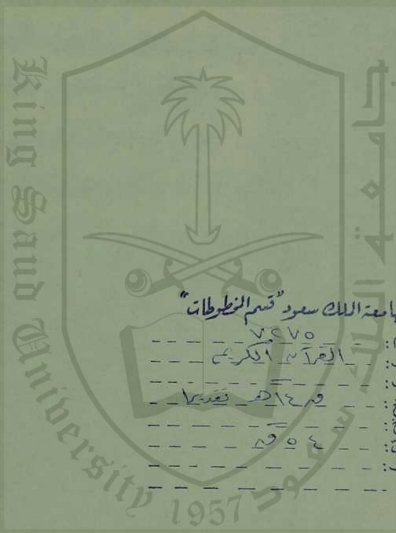 King Saud University
1957
جامعة الملك سعود
جامعة الملك سعود "قسم المخطوطات"
٧٢٧٥
القرآن الكريم
ق ١٤ هـ تقديرا
٤٥ ق